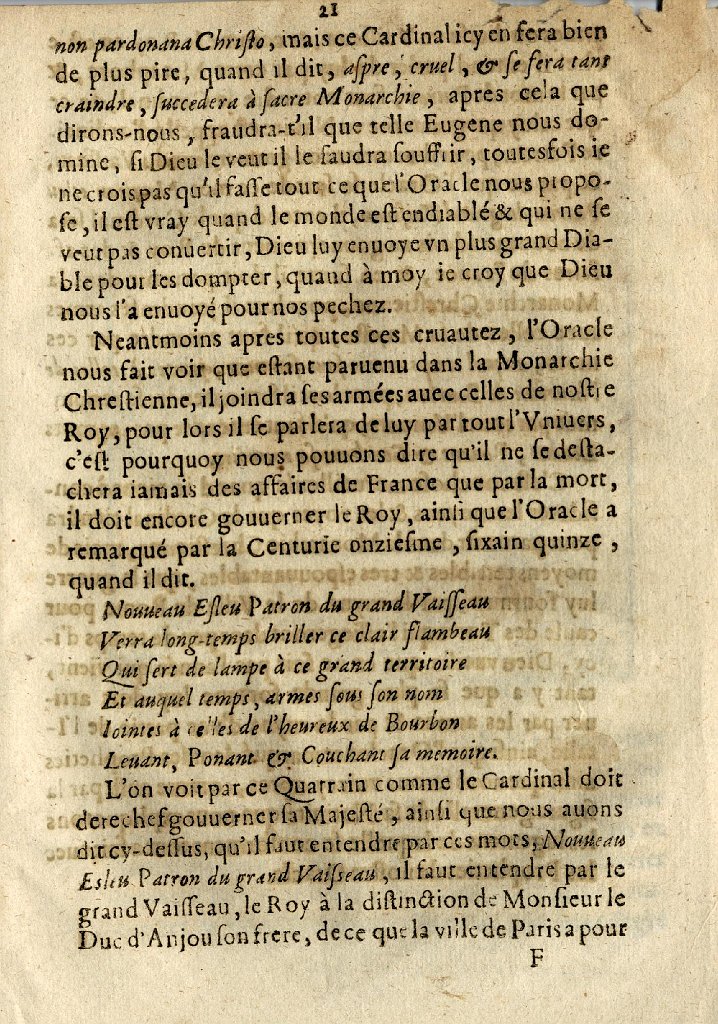 21
non pardonana Christo, mais ce Cardinal icy en fera bien
de plus pire, quand il dit, aspre, cruel, & se fera tant
craindre, succedera à sacre Monarchie, apres cela que
dirons-nous, fraudra-t'il que telle Eugene nous do-
mine, si Dieu le veut il le faudra souffrir, toutesfois ie
ne crois pas qu'il fasse tout ce que l'Oracle nous propo-
se, il est vray quand le monde est endiablé & qui ne se
veut pas conuertir, Dieu luy enuoye vn plus grand Dia-
ble pour les dompter, quand à moy ie croy que Dieu
nous l'a enuoyé pour nos pechez.
Neantmoins apres toutes ces cruautez, l'Oracle
nous fait voir que estant paruenu dans la Monarchie
Chrestienne, il joindra ses armées auec celles de nostre
Roy, pour lors il se parlera de luy par tout l'Vniuers,
c'est pourquoy nous pouuons dire qu'il ne se desta-
chera iamais des affaires de France que par la mort,
il doit encore gouuerner le Roy, ainsi que l'Oracle a
remarqué par la Centurie onziesme, sixain quinze,
quand il dit.
Nouueau Esleu Patron du grand Vaisseau
Verra long-temps briller ce clair flambeau
Qui sert de lampe à ce grand territoire
Et auquel temps, armes sous son nom
Iointes à celles de l'heureux de Bourbon
Leuant, Ponant & Couchant sa memoire.
L'on voit par ce Quatrain comme le Cardinal doit
derechef gouuerner sa Majesté, ainsi que nous auons
dit cy-dessus, qu'il faut entendre par ces mots, Nouueau
Esleu Patron du grand Vaisseau, il faut entendre par le
grand Vaisseau, le Roy à la distinction de Monsieur le
Duc d'Anjou son frere, de ce que la ville de Paris a pour
F